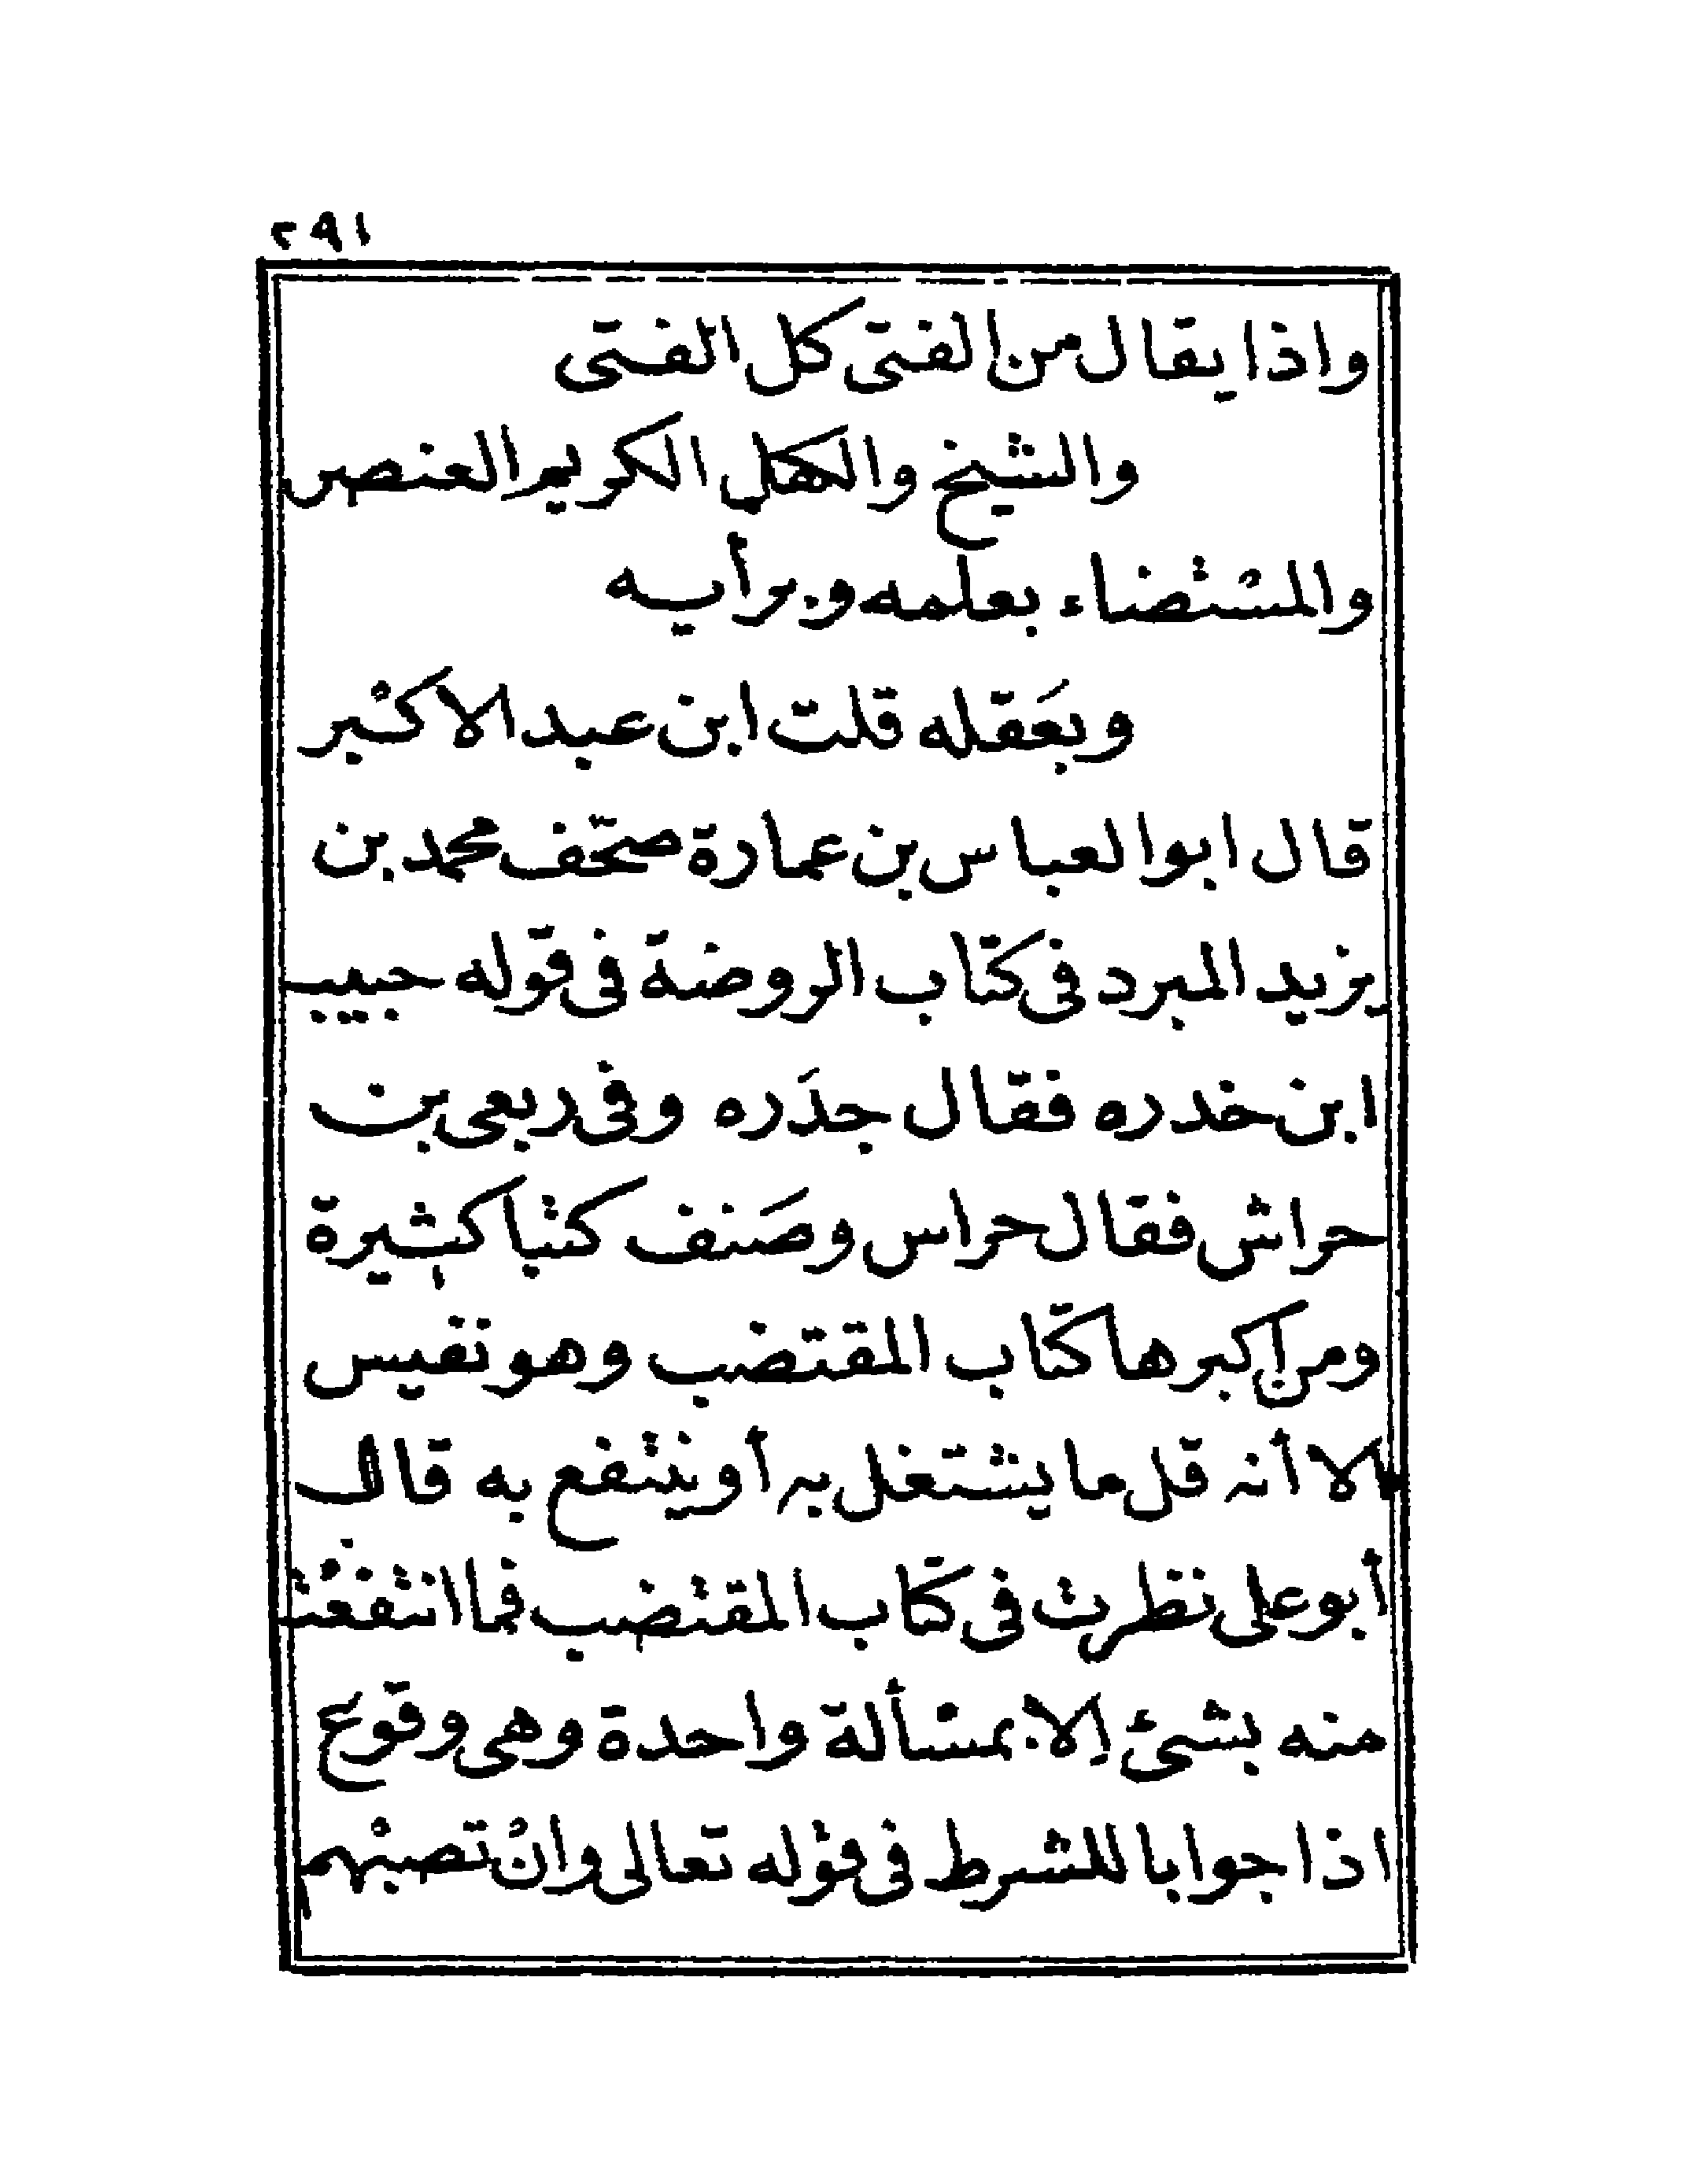 ٢٩١
واذا يقال من الفتى كل الفتى
والشيخ والكهل الكريم العنصر
والمستضاء بعلمه وبرأيه
وبعَقله قلت ابن عبد الاكبر
قال ابو العباس بن عمارة صحّف محمد بن
يزيد المبرد فى كتاب الروضة فى قوله حبيب
ابن خدره فقال جدَره وفى ربعى بن
حراش فقال حراس وصَنف كتبا كثيرة
ومن اكبرها كتاب المقتضب وهو نفيس
الا أنه قل ما يشتغل به أو ينتفع به قال
أبو على نظرت فى كتاب المقتضب فما انتفعْت
منه بشئ إلا بمسألة واحدة وهى وقوع
اذا جوابا للشرط فى قوله تعالى وانْ تصبْهم